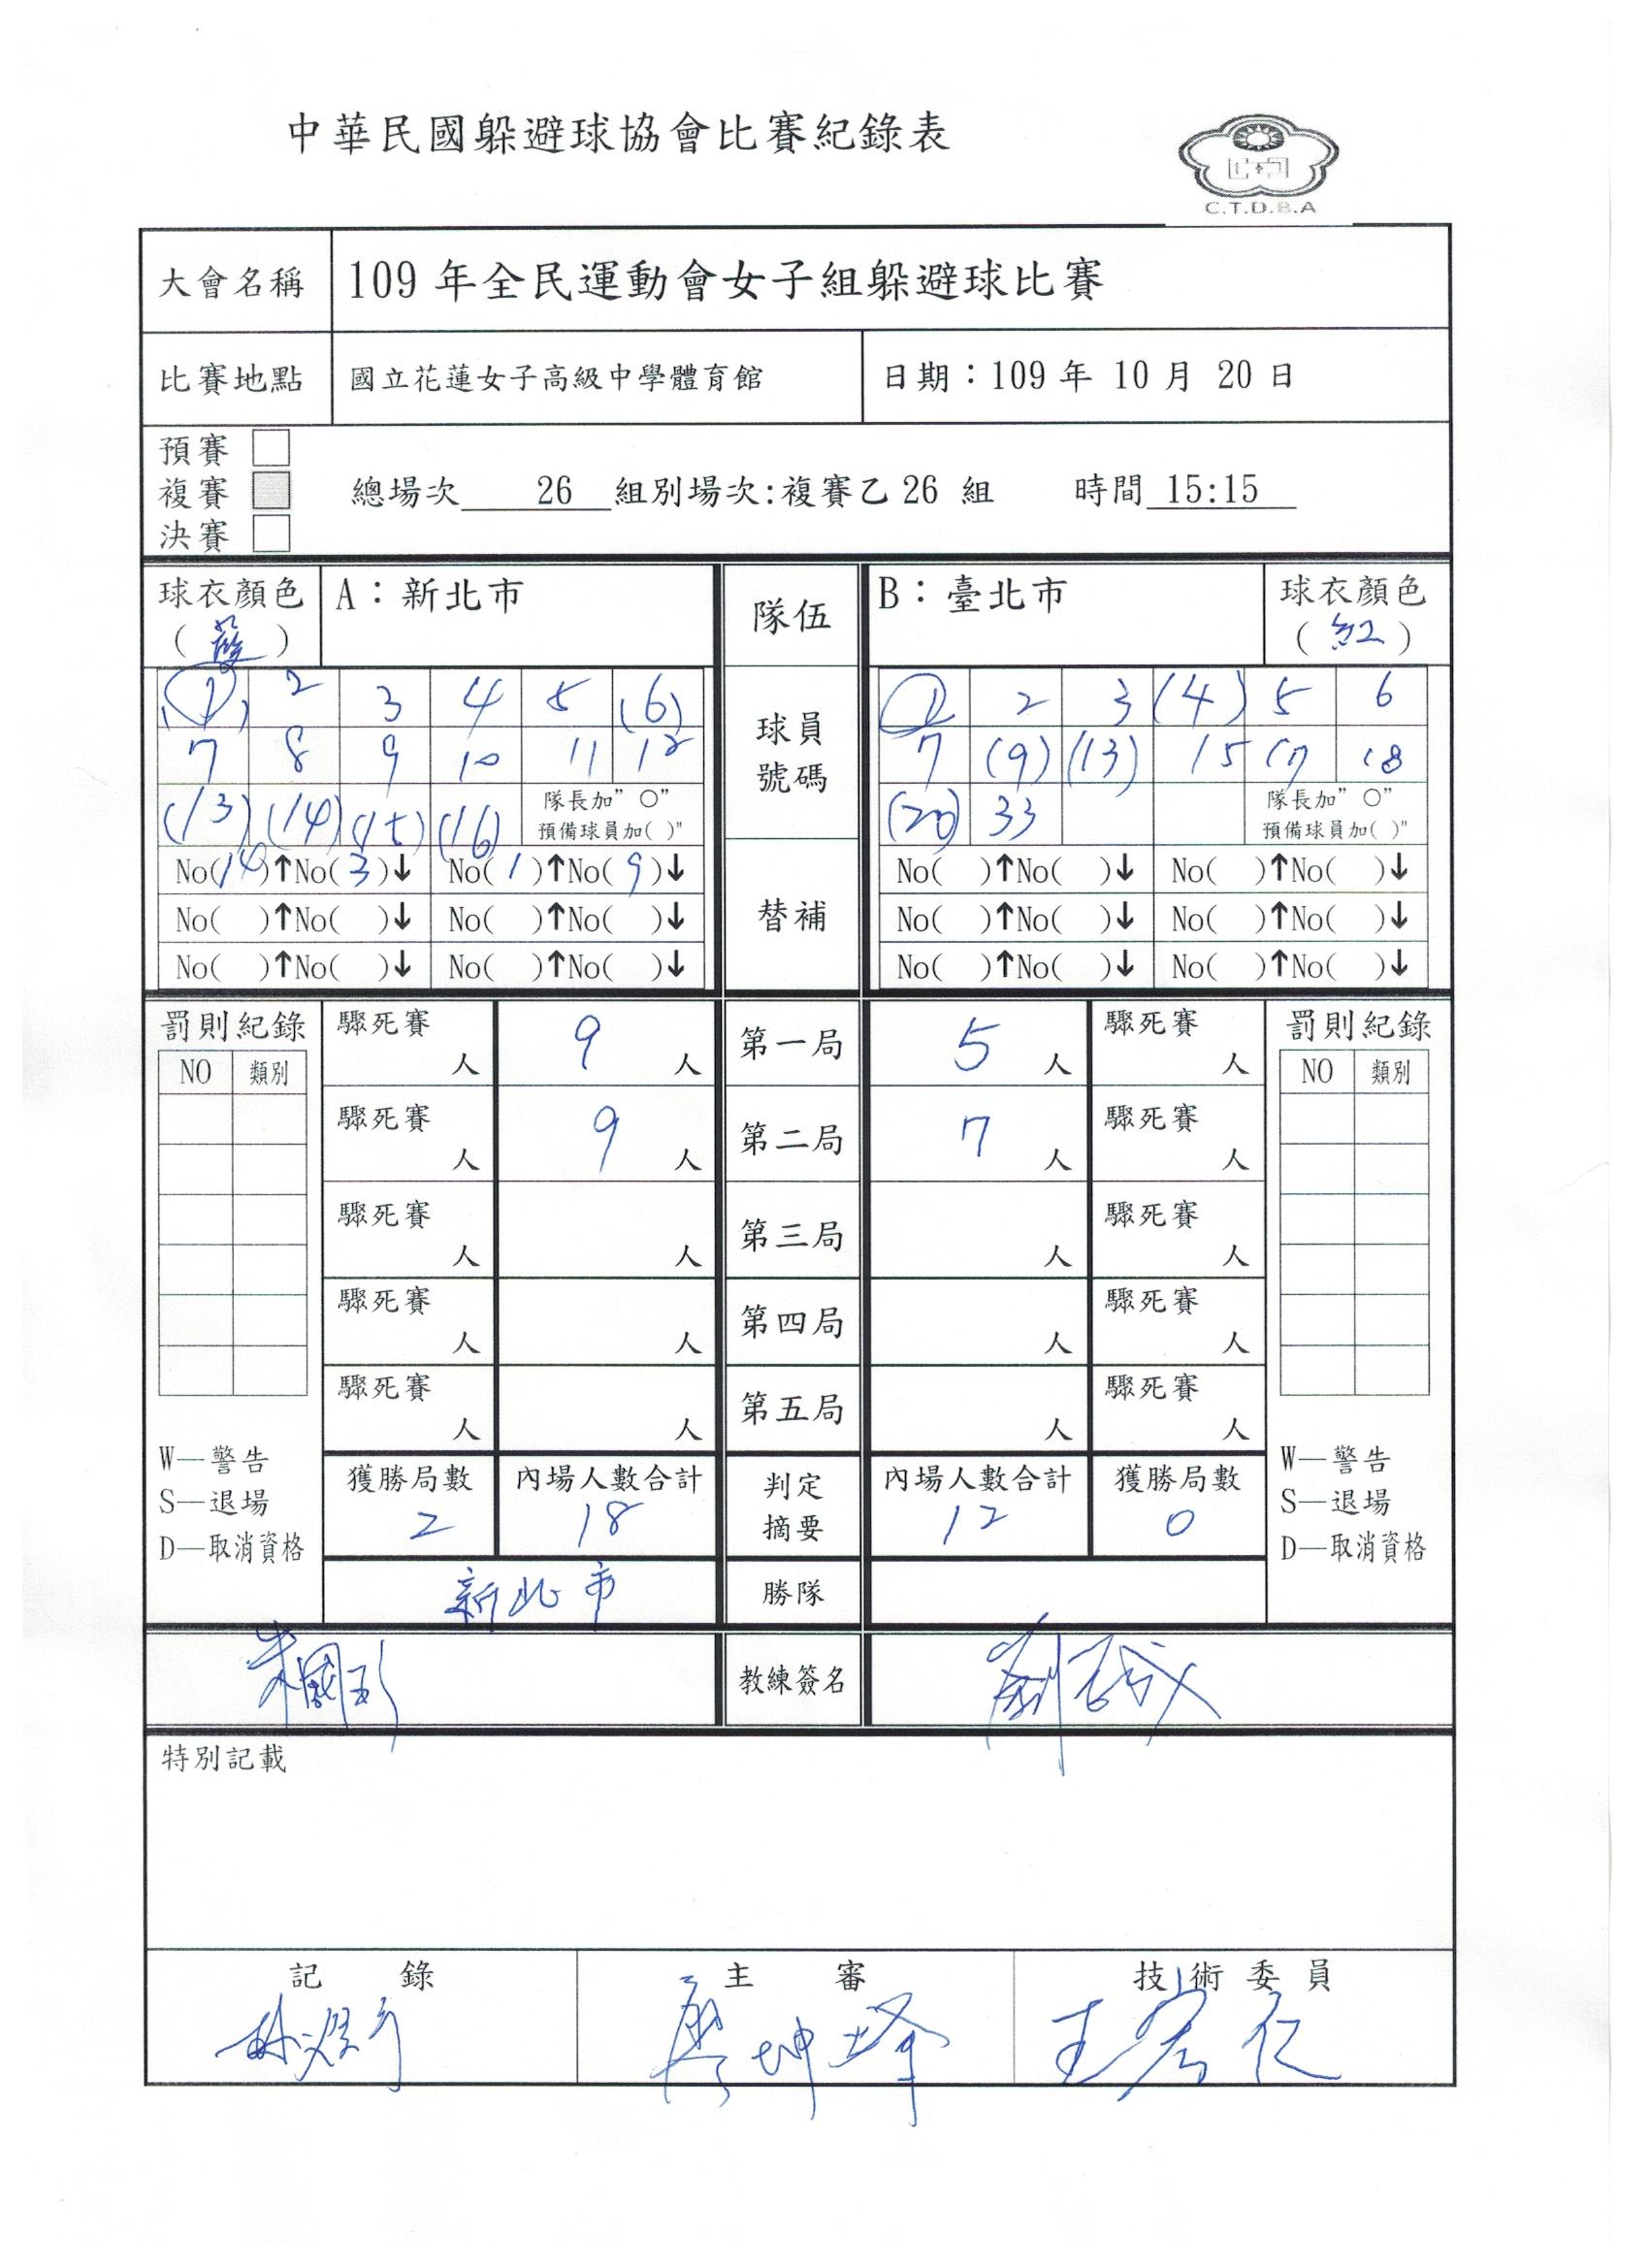 中華民國躲避球協會比賽紀錄表
C.T.D.B.A
大會名稱 109 年全民運動會女子組躲避球比賽
比賽地點 國立花蓮女子高級中學體育館 日期：109 年 10 月 20 日
預賽
複賽 總場次 26 組別場次:複賽乙 26 組 時間 15:15
決賽
球衣顏色 A：新北市 隊伍 B：臺北市 球衣顏色
( ) (紅)
(1) 2 3 4 5 (6) 球員號碼 1 2 3 (4) 5 6
7 8 9 10 11 12 7 (9) (13) 15 17 18
(13) (14) (15) (16) 隊長加"○" (20) 33 隊長加"○"
預備球員加( )" 預備球員加( )"
No(14)↑No(3)↓ No(1)↑No(9)↓ 替補 No( )↑No( )↓ No( )↑No( )↓
No( )↑No( )↓ No( )↑No( )↓ No( )↑No( )↓ No( )↑No( )↓
No( )↑No( )↓ No( )↑No( )↓ No( )↑No( )↓ No( )↑No( )↓
罰則紀錄 驟死賽 人 9 人 第一局 5 人 驟死賽 人 罰則紀錄
NO 類別 NO 類別
驟死賽 人 9 人 第二局 7 人 驟死賽 人
驟死賽 人 人 第三局 人 驟死賽 人
驟死賽 人 人 第四局 人 驟死賽 人
驟死賽 人 人 第五局 人 驟死賽 人
W—警告 獲勝局數 內場人數合計 判定摘要 內場人數合計 獲勝局數 W—警告
S—退場 2 18 12 0 S—退場
D—取消資格 D—取消資格
新北市 勝隊
教練簽名
特別記載
記 錄 主 審 技術委員
王宏仁